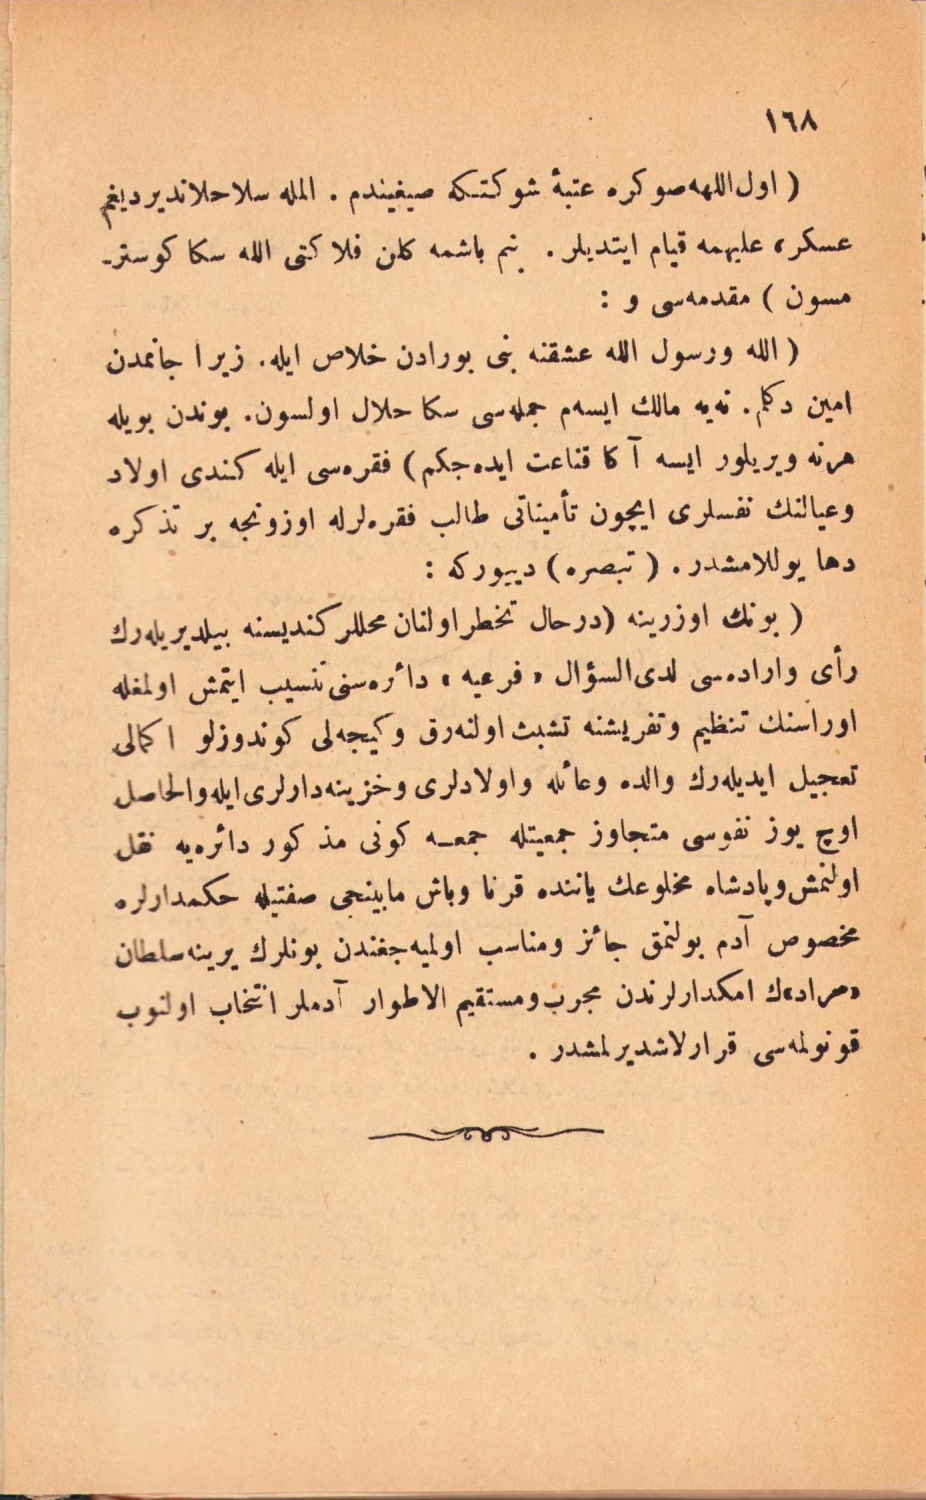 ١٦٨
( اول اللهه صوكره عتبۀ شوكتكه صیغیندم . المله سلاحلاندیردیغم
عسكر، علیهمه قیام ایتدیلر . بنم باشمه كلن فلاكتی الله سكا كوستر-
مسون ) مقدمه‌سی و :
( الله ورسول الله عشقنه بنی بورادن خلاص ایله. زیرا جانمدن
امین دكلم. نه‌یه مالك ایسه‌م جمله‌سی سكا حلال اولسون. بوندن بویله
هرنه ویریلور ایسه آكا قناعت ایده‌جكم ) فقره‌سی ایله كندی اولاد
وعیالنك نفسلری ایچون تأمیناتی طالب فقره‌لرله اوزونجه بر تذكره
دها یوللامشدر. ( تبصره ) دییوركه :
( بونك اوزرینه (درحال تخطر اولنان محللر كندیسنه بیلدیریله‌رك
رأی واراده‌سی لدی‌السؤال « فرعیه » دائره‌سنی تنسیب ایتمش اولمغله
اوراسنك تنظیم وتفریشنه تشبث اولنه‌رق وكیجه‌لی كوندوزلو اكمالی
تعجیل ایدیله‌رك والده وعائله واولادلری وخزینه‌دارلری ایله والحاصل
اوچ یوز نفوسی متجاوز جمعیتله جمعه كونی مذكور دائره‌یه نقل
اولنمش وپادشاه مخلوعك یاننده قرنا وباش مابینجی صفتیله حكمدارلره
مخصوص آدم بولنمق جائز ومناسب اولمیه‌جغندن بونلرك یرینه سلطان
«مراد»ك امكدارلرندن مجرب ومستقیم الاطوار آدملر انتخاب اولنوب
قونولمه‌سی قرارلاشدیرلمشدر .